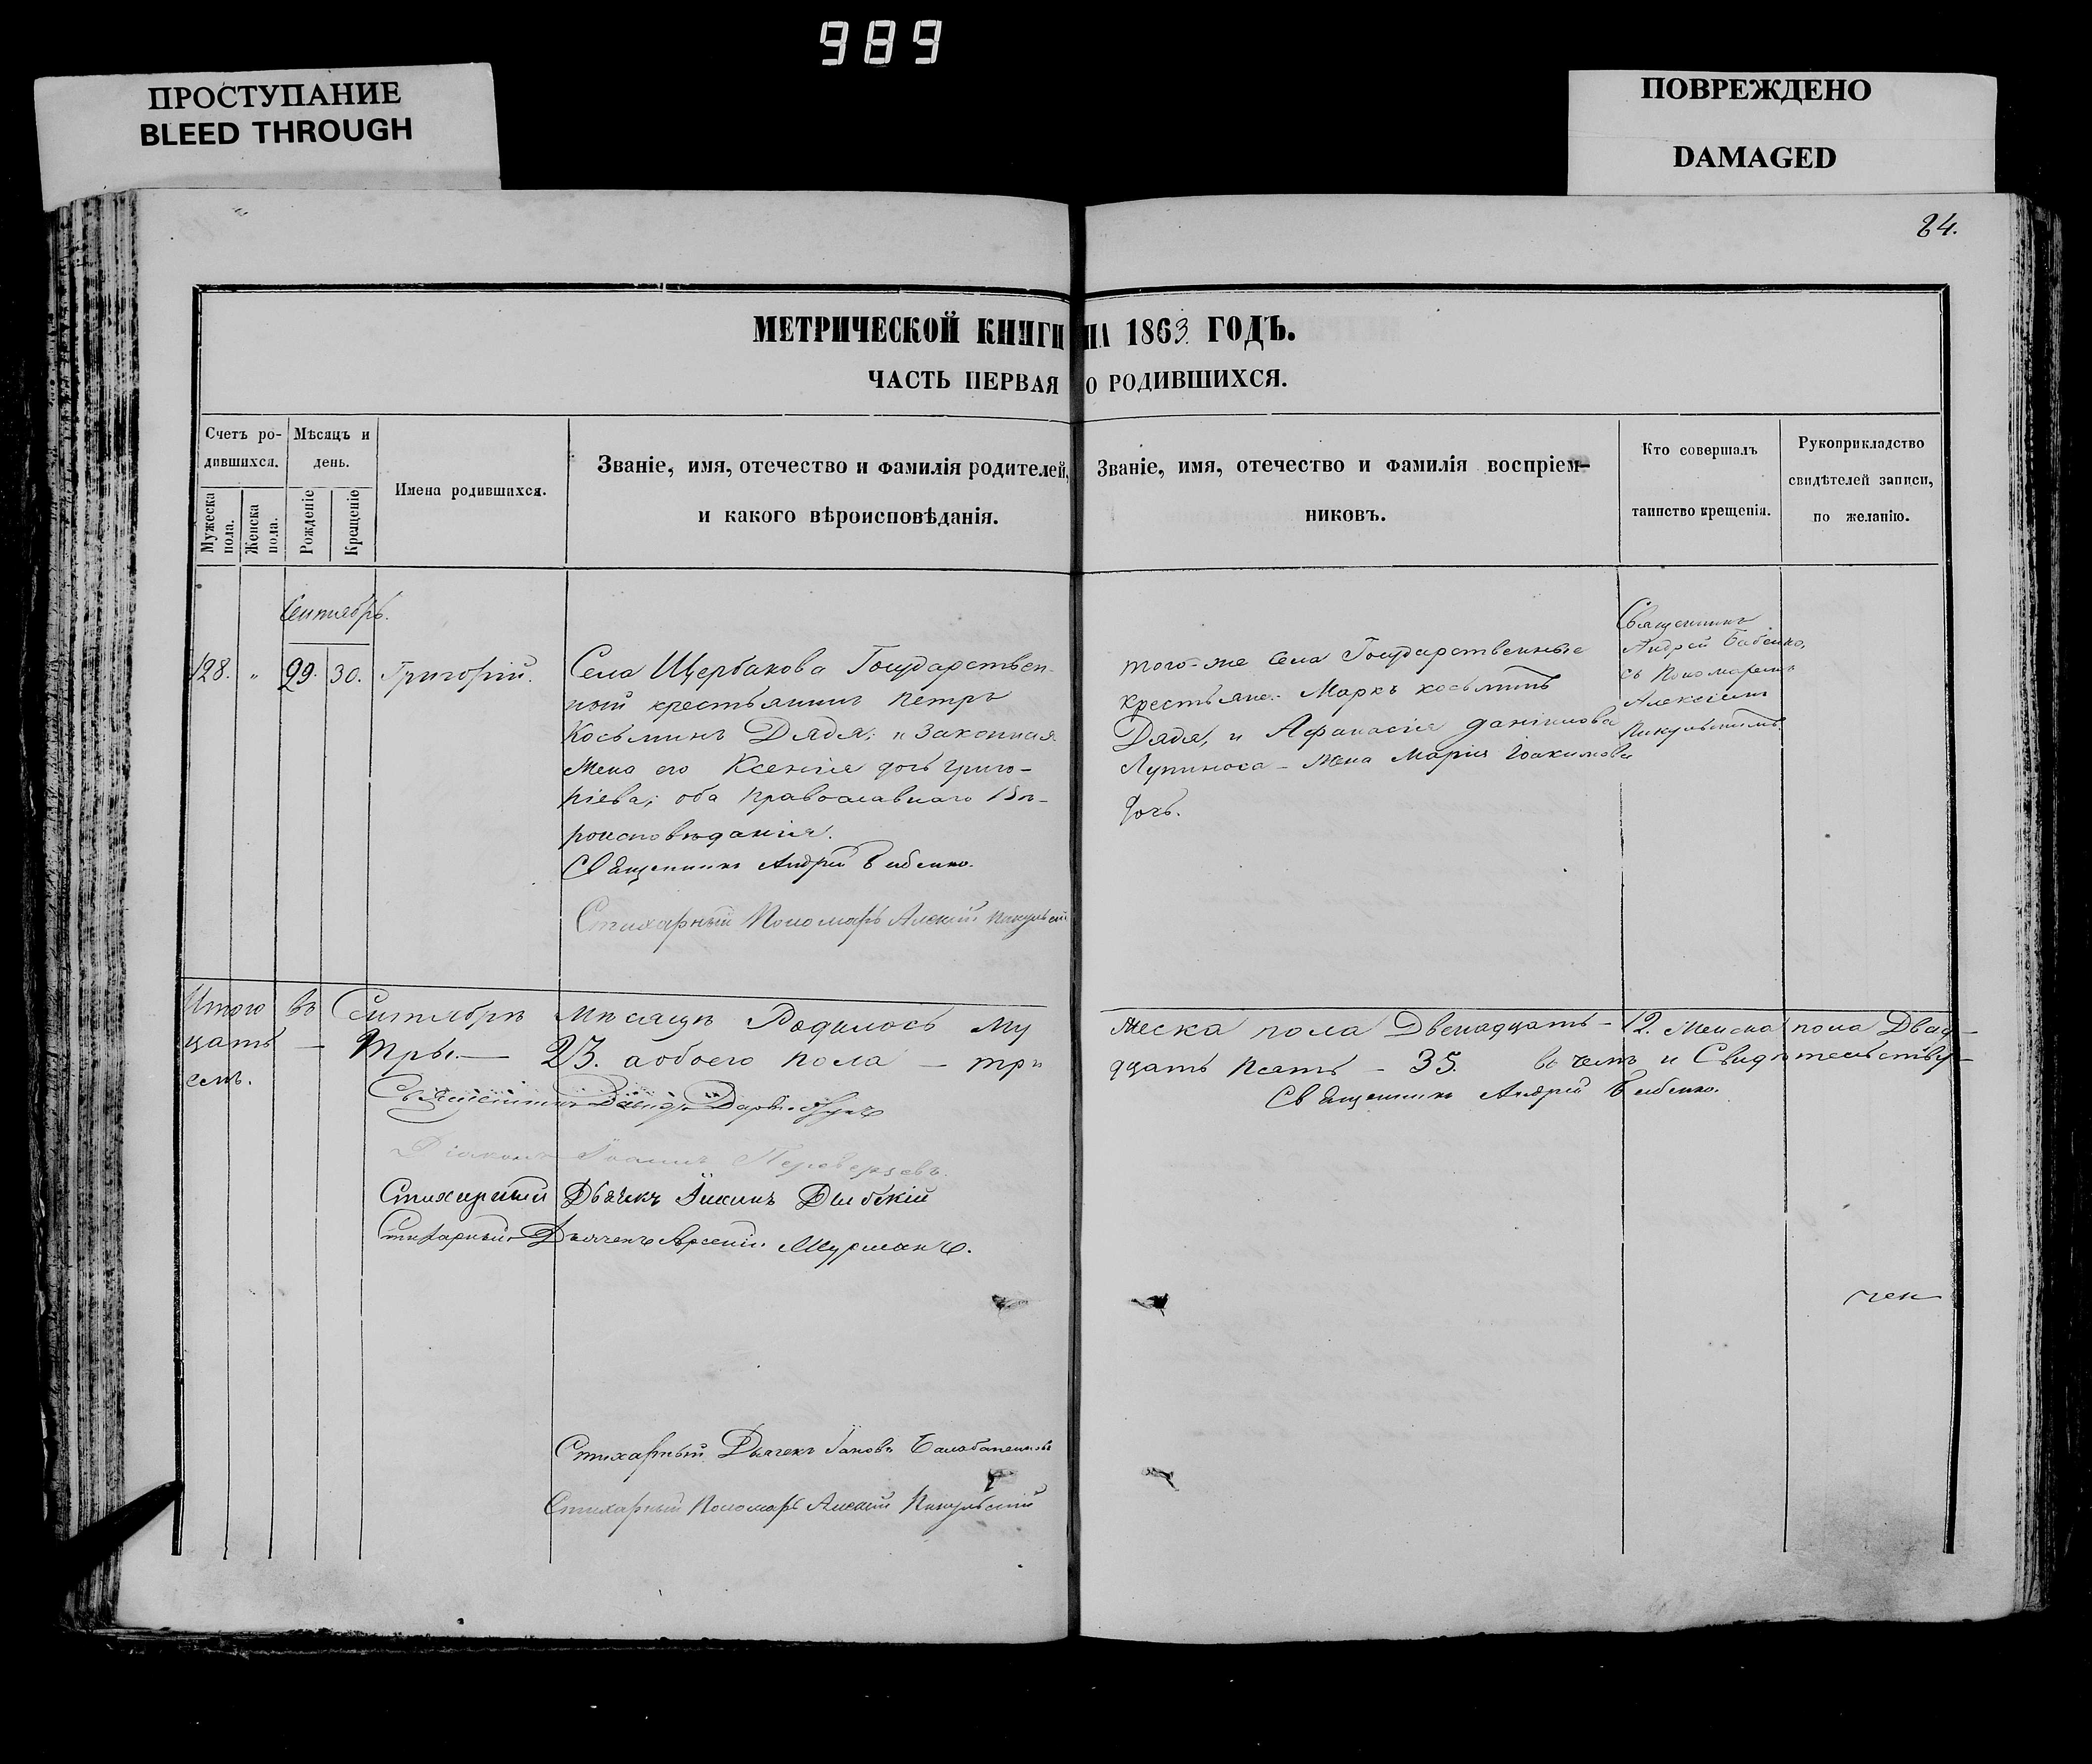 989
ПРОСТУПАНИЕ
BLEED THROUGH
ПОВРЕЖДЕНО
DAMAGED
84.
МЕТРИЧЕСКОЙ КНИГИ НА 1863 ГОДЪ.
ЧАСТЬ ПЕРВАЯ О РОДИВШИХСЯ.
Счетъ ро-
дившихся.
Мужеска пола.
Женска пола.
Мѣсяцъ и
день.
Рожденіе
Крещеніе
Имена родившихся.
Званіе, имя, отечество и фамилія родителей,
и какого вѣроисповѣданія.
Званіе, имя, отечество и фамилія воспріем-
никовъ.
Кто совершалъ
таинство крещенія.
Рукоприкладство
свидѣтелей записи,
по желанію.
Сентябрь.
128. " 29. 30. Григорій.
Села Щербакова Государствен-
ный крестьянинъ Петръ
Косьминъ Дядя; и законная
жена его Ксенія дочь Григо-
ріева; оба православнаго вѣ-
роисповѣданія.
Священникъ Андрей Бабенко.
Стихарный Пономарь Алексій Пикульскій
того-же села Государственные
крестьяне: Маркъ Косьминъ
Дядя, и Афанасія Даніилова
Лупиноса - жена Марія Іоакимова
дочь.
Священникъ
Андрей Бабенко,
съ Пономаремъ
Алексіемъ
Пикульскимъ.
Итого въ Сентябрѣ Мѣсяцѣ Родилось му
жеска пола Двенадцать - 12. Женска пола Двад-
цать — Три. — 23. а обоего пола — три
дцать пять - 35. въ чемъ и Свидѣтельству-
емъ.
Священникъ Андрей Бабенко.
Священникъ
Діаконъ Іоаннъ Переверзевъ.
Стихарный Дьячекъ
Стихарный Дьячекъ Арсеній
Стихарный Дьячекъ Іаковъ
Стихарный Пономарь Алексій Пикульскій